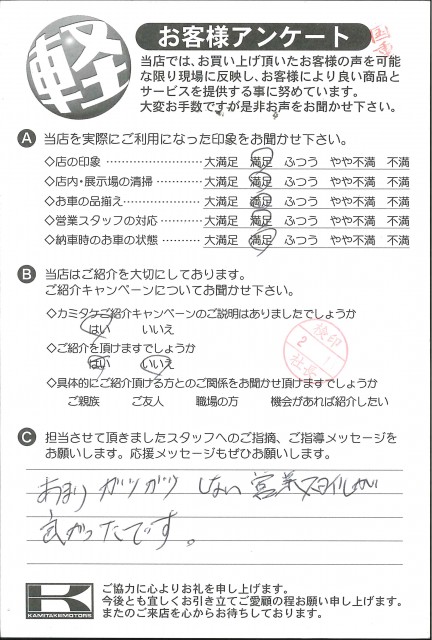 軽
お客様アンケート
当店では、お買い上げ頂いたお客様の声を可能
な限り現場に反映し、お客様により良い商品と
サービスを提供する事に努めています。
大変お手数ですが是非お声をお聞かせ下さい。
A 当店を実際にご利用になった印象をお聞かせ下さい。
◇店の印象 ………………… 大満足 満足 ふつう やや不満 不満
◇店内・展示場の清掃 ………… 大満足 満足 ふつう やや不満 不満
◇お車の品揃え ……………… 大満足 満足 ふつう やや不満 不満
◇営業スタッフの対応 ………… 大満足 満足 ふつう やや不満 不満
◇納車時のお車の状態 ………… 大満足 満足 ふつう やや不満 不満
B 当店はご紹介を大切にしております。
ご紹介キャンペーンについてお聞かせ下さい。
◇カミタケご紹介キャンペーンのご説明はありましたでしょうか
はい いいえ
◇ご紹介を頂けますでしょうか
はい いいえ
検印
2 1
社長
◇具体的にご紹介頂ける方とのご関係をお聞かせ頂けますでしょうか
ご親族 ご友人 職場の方 機会があれば紹介したい
C 担当させて頂きましたスタッフへのご指摘、ご指導メッセージを
お願いします。応援メッセージもぜひお願いします。
あまり ガツガツ しない 営業スタイルが
良かったです。
K
KAMITAKEMOTORS
ご協力に心よりお礼を申し上げます。
今後とも宜しくお引き立てご愛顧の程お願い申し上げます。
またのご来店を心からお待ちしております。